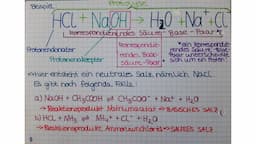 Beispiel: Protolyse
HCl + NaOH → H₂O + Na⁺ + Cl⁻
korrespondierendes Säure-Base-Paar*
Protonendonator
Protonenakzeptor
korrespondierendes Base-Säure-Paar*
*ein korrespondierendes Säure-Base-Paar unterscheidet sich um ein Proton!
Hier entsteht ein neutrales Salz, nämlich NaCl.
Es gibt noch folgende Fälle:
a) NaOH + CH₃COOH ⇌ CH₃COO⁻ + Na⁺ + H₂O
→ Reaktionsprodukt Natriumacetat → BASISCHES SALZ
b) HCl + NH₃ ⇌ NH₄⁺ + Cl⁻ + H₂O
→ Reaktionsprodukt Ammoniumchlorid → SAURES SALZ